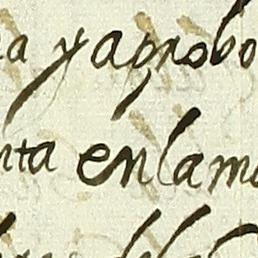 a y aprobo
nta en la ma